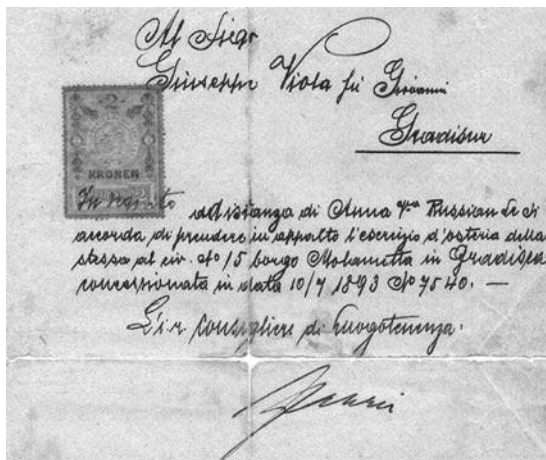 Al Sigr
Giuseppe Viola fu Giovanni
Gradisca
2
KRONEN
In seguito ad istanza di Anna Russian Le si
accorda di prendere in appalto l'esercizio d'osteria della
stessa al civ. No 15 borgo in Gradisca
concessionata in data 10/7 1893 No 7540. —
L'i. r. Consigliere di Luogotenenza.